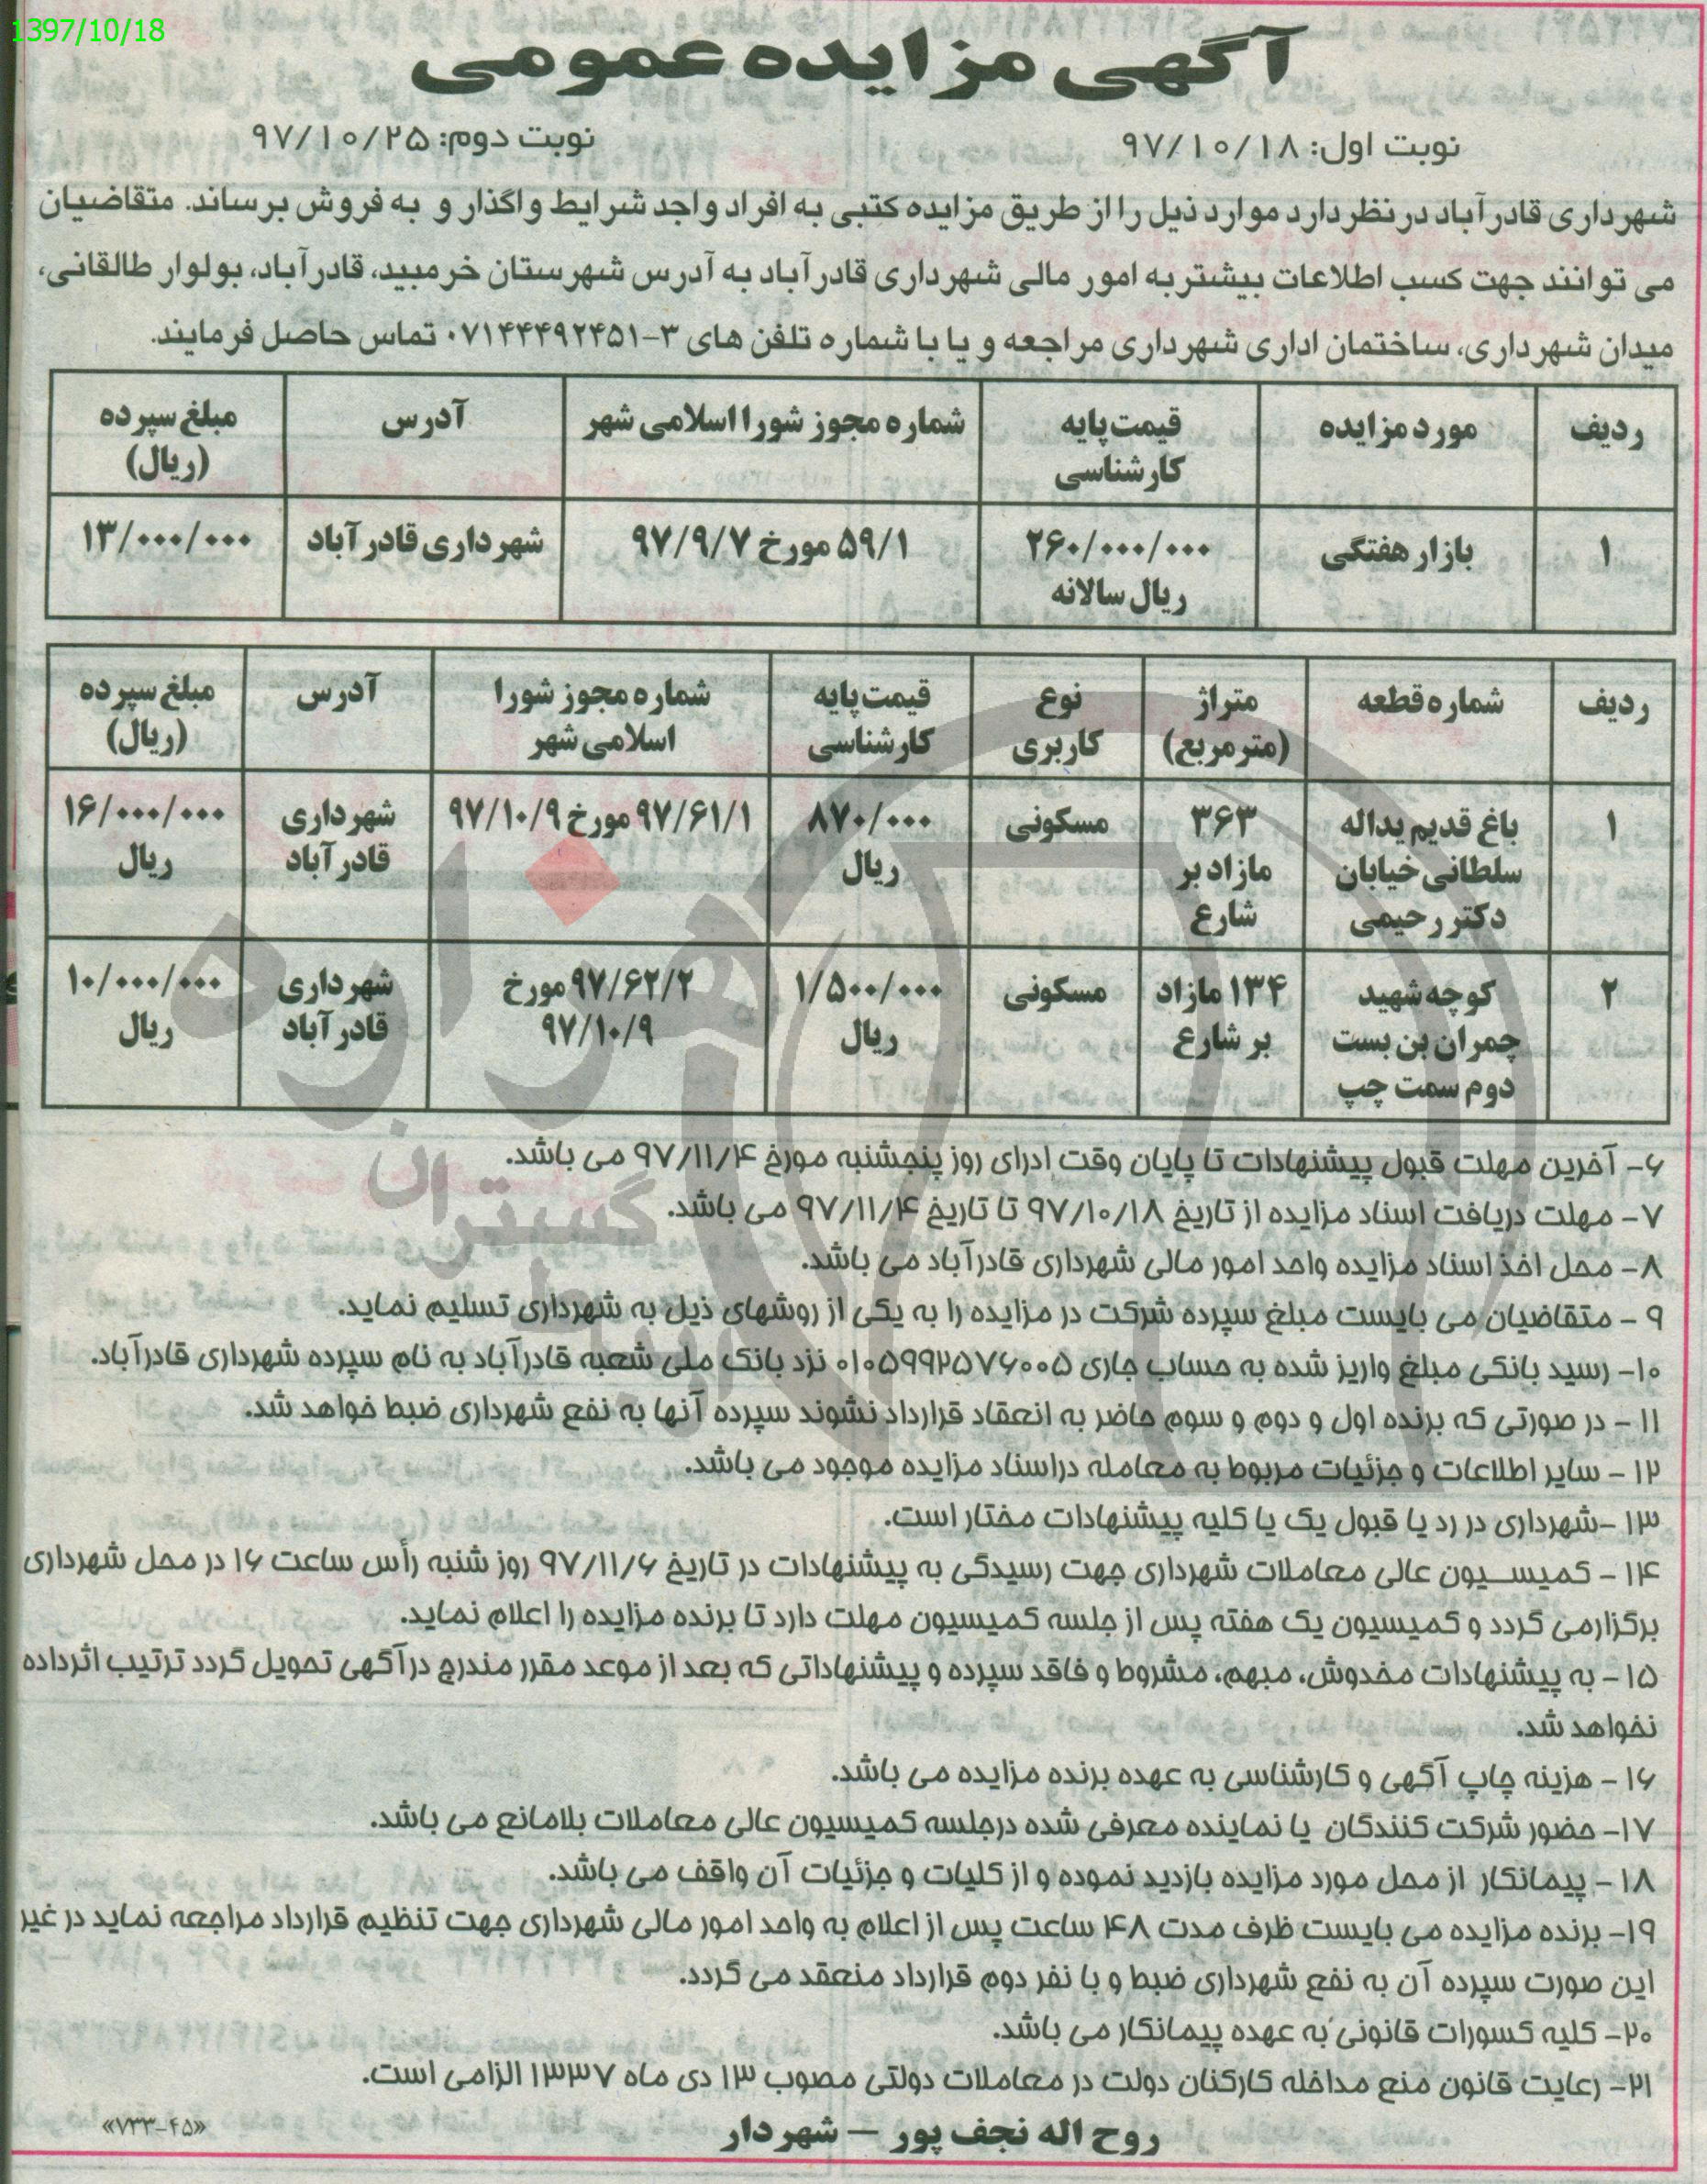 1397/10/18
آگهی مزایده عمومی
نوبت اول: ۹۷/۱۰/۱۸
نوبت دوم: ۹۷/۱۰/۲۵
شهرداری قادرآباد در نظر دارد موارد ذیل را از طریق مزایده کتبی به افراد واجد شرایط واگذار و به فروش برساند. متقاضیان
می توانند جهت کسب اطلاعات بیشتر به امور مالی شهرداری قادرآباد به آدرس شهرستان خرمبید، قادرآباد، بولوار طالقانی،
میدان شهرداری، ساختمان اداری شهرداری مراجعه و یا با شماره تلفن های ۳-۰۷۱۴۴۴۹۲۴۵۱ تماس حاصل فرمایند.
ردیف
مورد مزایده
قیمت پایه
کارشناسی
شماره مجوز شورا اسلامی شهر
آدرس
مبلغ سپرده
(ریال)
۱
بازار هفتگی
۲۶۰/۰۰۰/۰۰۰
ریال سالانه
۵۹/۱ مورخ ۹۷/۹/۷
شهرداری قادرآباد
۱۳/۰۰۰/۰۰۰
ردیف
شماره قطعه
متراژ
(مترمربع)
نوع
کاربری
قیمت پایه
کارشناسی
شماره مجوز شورا
اسلامی شهر
آدرس
مبلغ سپرده
(ریال)
۱
باغ قدیم یداله
سلطانی خیابان
دکتر رحیمی
۳۶۳
مازاد بر
شارع
مسکونی
۸۷۰/۰۰۰
ریال
۹۷/۶۱/۱ مورخ ۹۷/۱۰/۹
شهرداری
قادرآباد
۱۶/۰۰۰/۰۰۰
ریال
۲
کوچه شهید
چمران بن بست
دوم سمت چپ
۱۳۴ مازاد
بر شارع
مسکونی
۱/۵۰۰/۰۰۰
ریال
۹۷/۶۲/۲ مورخ
۹۷/۱۰/۹
شهرداری
قادرآباد
۱۰/۰۰۰/۰۰۰
ریال
۶- آخرین مهلت قبول پیشنهادات تا پایان وقت ادرای روز پنجشنبه مورخ ۹۷/۱۱/۴ می باشد.
۷- مهلت دریافت اسناد مزایده از تاریخ ۹۷/۱۰/۱۸ تا تاریخ ۹۷/۱۱/۴ می باشد.
۸- محل اخذ اسناد مزایده واحد امور مالی شهرداری قادرآباد می باشد.
۹ - متقاضیان می بایست مبلغ سپرده شرکت در مزایده را به یکی از روشهای ذیل به شهرداری تسلیم نماید.
۱۰- رسید بانکی مبلغ واریز شده به حساب جاری ۰۱۰۵۹۹۲۵۷۶۰۰۵ نزد بانک ملی شعبه قادرآباد به نام سپرده شهرداری قادرآباد.
۱۱ - در صورتی که برنده اول و دوم و سوم حاضر به انعقاد قرارداد نشوند سپرده آنها به نفع شهرداری ضبط خواهد شد.
۱۲ - سایر اطلاعات و جزئیات مربوط به معامله دراسناد مزایده موجود می باشد.
۱۳ -شهرداری در رد یا قبول یک یا کلیه پیشنهادات مختار است.
۱۴ - کمیسیون عالی معاملات شهرداری جهت رسیدگی به پیشنهادات در تاریخ ۹۷/۱۱/۶ روز شنبه رأس ساعت ۱۶ در محل شهرداری
برگزارمی گردد و کمیسیون یک هفته پس از جلسه کمیسیون مهلت دارد تا برنده مزایده را اعلام نماید.
۱۵- به پیشنهادات مخدوش، مبهم، مشروط و فاقد سپرده و پیشنهاداتی که بعد از موعد مقرر مندرج درآگهی تحویل گردد ترتیب اثرداده
نخواهد شد.
۱۶ - هزینه چاپ آگهی و کارشناسی به عهده برنده مزایده می باشد.
۱۷- حضور شرکت کنندگان یا نماینده معرفی شده درجلسه کمیسیون عالی معاملات بلامانع می باشد.
۱۸ - پیمانکار از محل مورد مزایده بازدید نموده و از کلیات و جزئیات آن واقف می باشد.
۱۹- برنده مزایده می بایست ظرف مدت ۴۸ ساعت پس از اعلام به واحد امور مالی شهرداری جهت تنظیم قرارداد مراجعه نماید در غیر
این صورت سپرده آن به نفع شهرداری ضبط و با نفر دوم قرارداد منعقد می گردد.
۲۰- کلیه کسورات قانونی به عهده پیمانکار می باشد.
۲۱- رعایت قانون منع مداخله کارکنان دولت در معاملات دولتی مصوب ۱۳ دی ماه ۱۳۳۷ الزامی است.
روح اله نجف پور – شهردار
«۷۳۳-۴۵»
هزاره
گستران